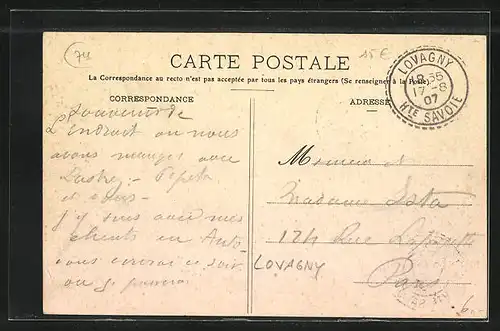 74
15 €
CARTE POSTALE
La Correspondance au recto n'est pas acceptée par tous les pays étrangers (Se renseigner à la Poste).
CORRESPONDANCE
ADRESSE
LOVAGNY
18 55
17 - 8
07
HTE SAVOIE
Souvenir de
L'Endroit ou nous
avons manger avec
et
J'y suis avec mes
clients en Auto
vous ce soir
ou
Monsieur et
Madame
124 Rue Lafayette
Paris
LOVAGNY
6.-